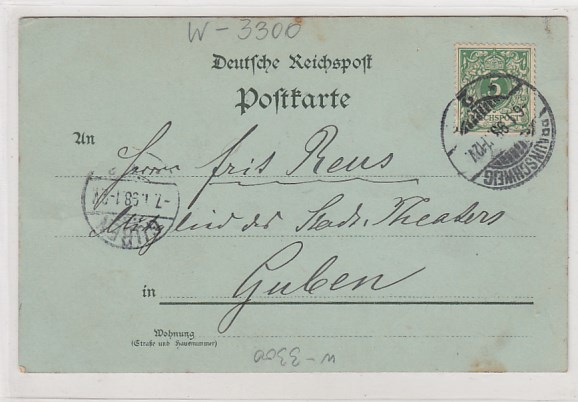 W-3300
Deutsche Reichspost
Postkarte
5
REICHSPOST
BRAUNSCHWEIG
An Herrn Fritz Reus
Mitglied des Stadt Theaters
-7.1.98.1-
GUBEN
in Guben
Wohnung
(Straße und Hausnummer)
W-3300